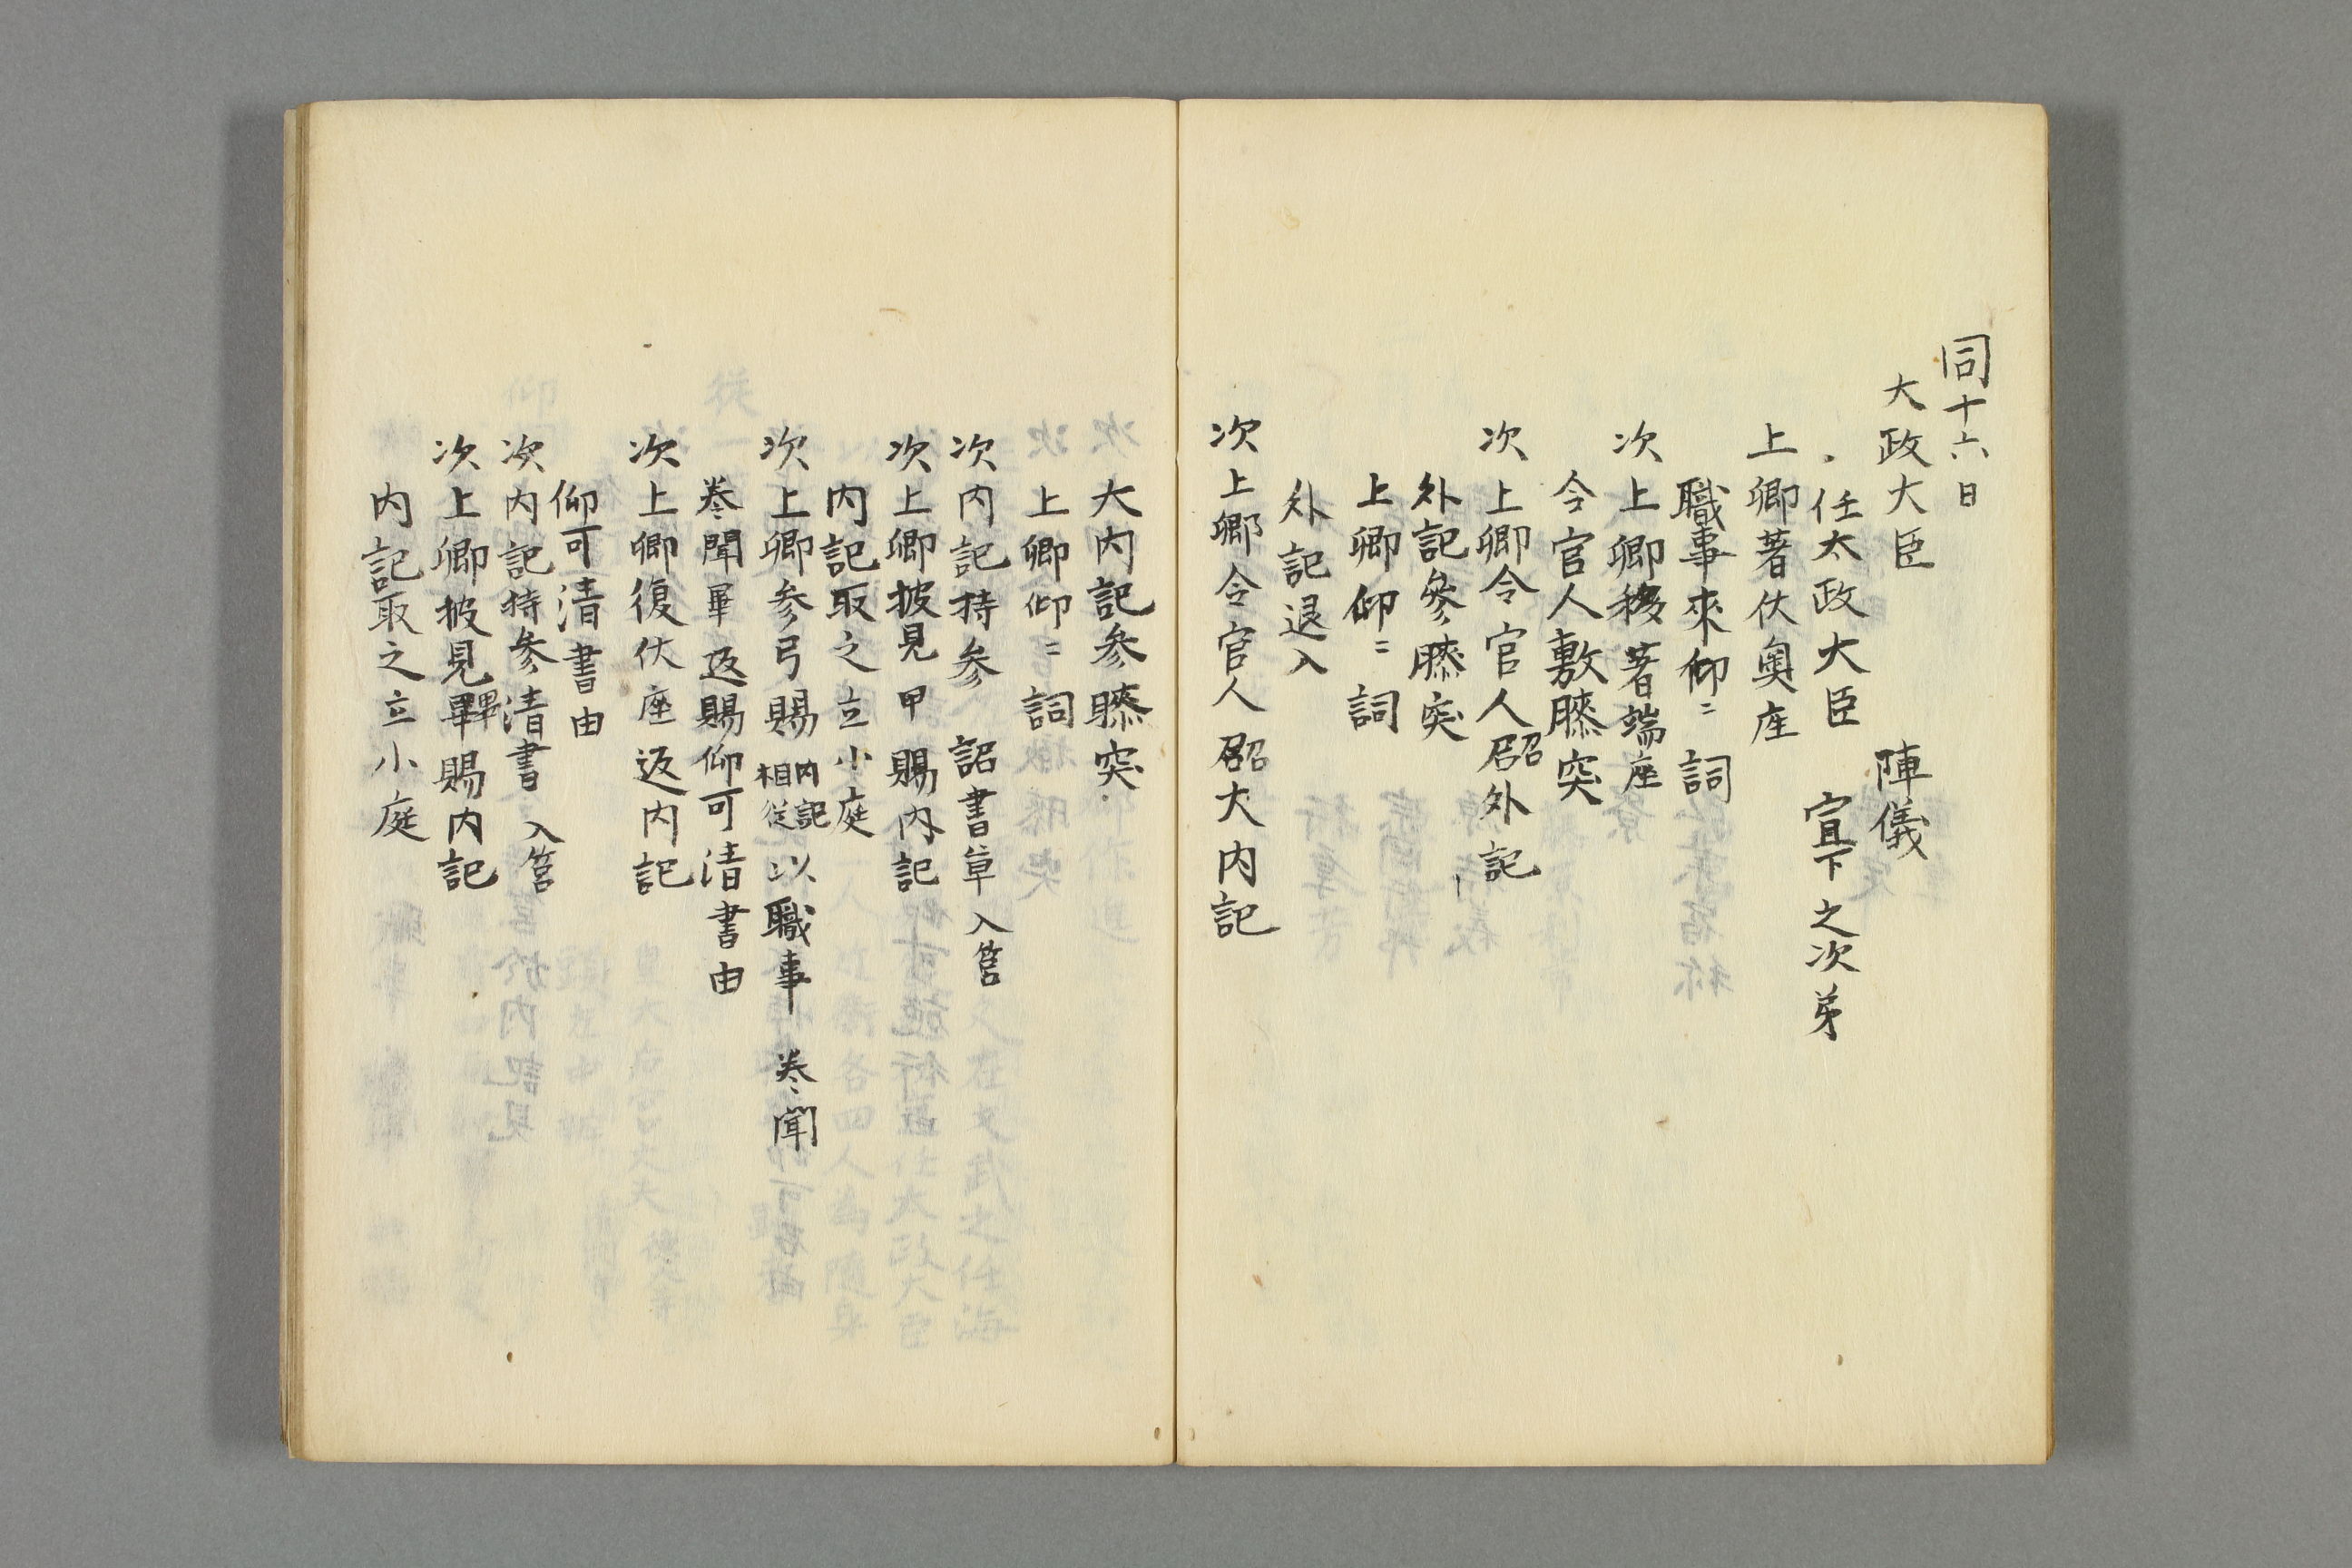 同十六日
大政大臣　陣儀
任太政大臣　宣下之次弟
上卿著仗奥座
職事来仰〻詞
次上卿移著端座
令官人敷膝突
次上卿令官人召外記
外記参膝突
上卿仰〻詞
外記退入
次上卿令官人召大内記
大内記参膝突
上卿仰〻詞
次内記持参　詔書草入筥
次上卿披見畢賜内記
内記取之立小庭
次上卿参弓場内記相従以職事　奏聞
奏聞畢返賜仰可清書由
次上卿復仗座返内記
仰可清書由
次内記持参清書入筥
次上卿披見畢賜内記
内記取之立小庭